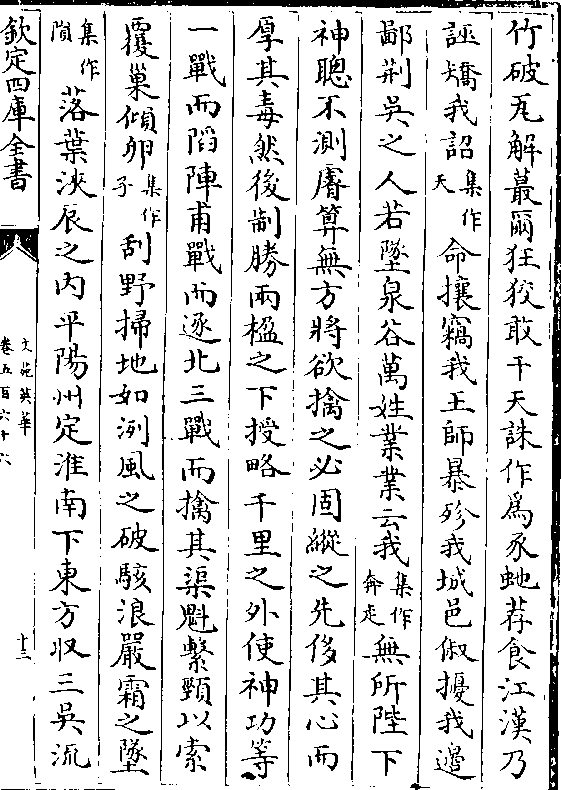 竹破瓦解蕞爾狂狡敢干天誅作為豕虵荐食江漢乃
誣矯我詔集作天命攘竊我王師暴殄我城邑俶擾我邊
鄙荆吳之人若墜泉谷萬姓業業云我集作奔走無所陛下
神聰不測睿算無方將欲擒之必固縱之先侈其心而
厚其毒然後制勝兩楹之下授略千里之外使神功等
一戰而䧟陣再戰而逐北三戰而擒其渠魁繫頸以索
覆巢傾卵集作子刮野掃地如洌風之破駭浪嚴霜之墜
集作隕落葉浹辰之内平陽州定淮南下東方収三吳流
欽定四庫全書
文苑英華
卷五百六十六
十二